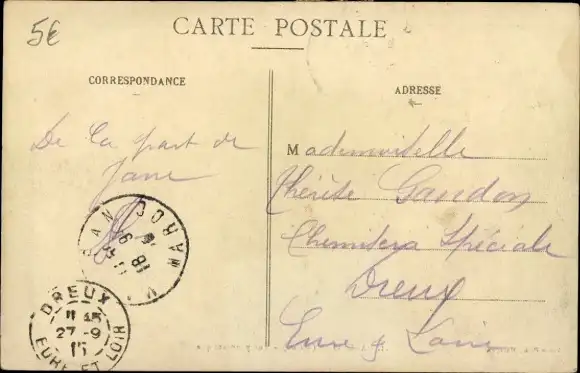 5€
CARTE POSTALE
CORRESPONDANCE
ADRESSE
De la part de
Jane
Mademoiselle
Thérèse Gaudon
Spéciale
Dreux
Eure & Loir
MAROC
18
DREUX
27-9
15
EURE ET LOIR